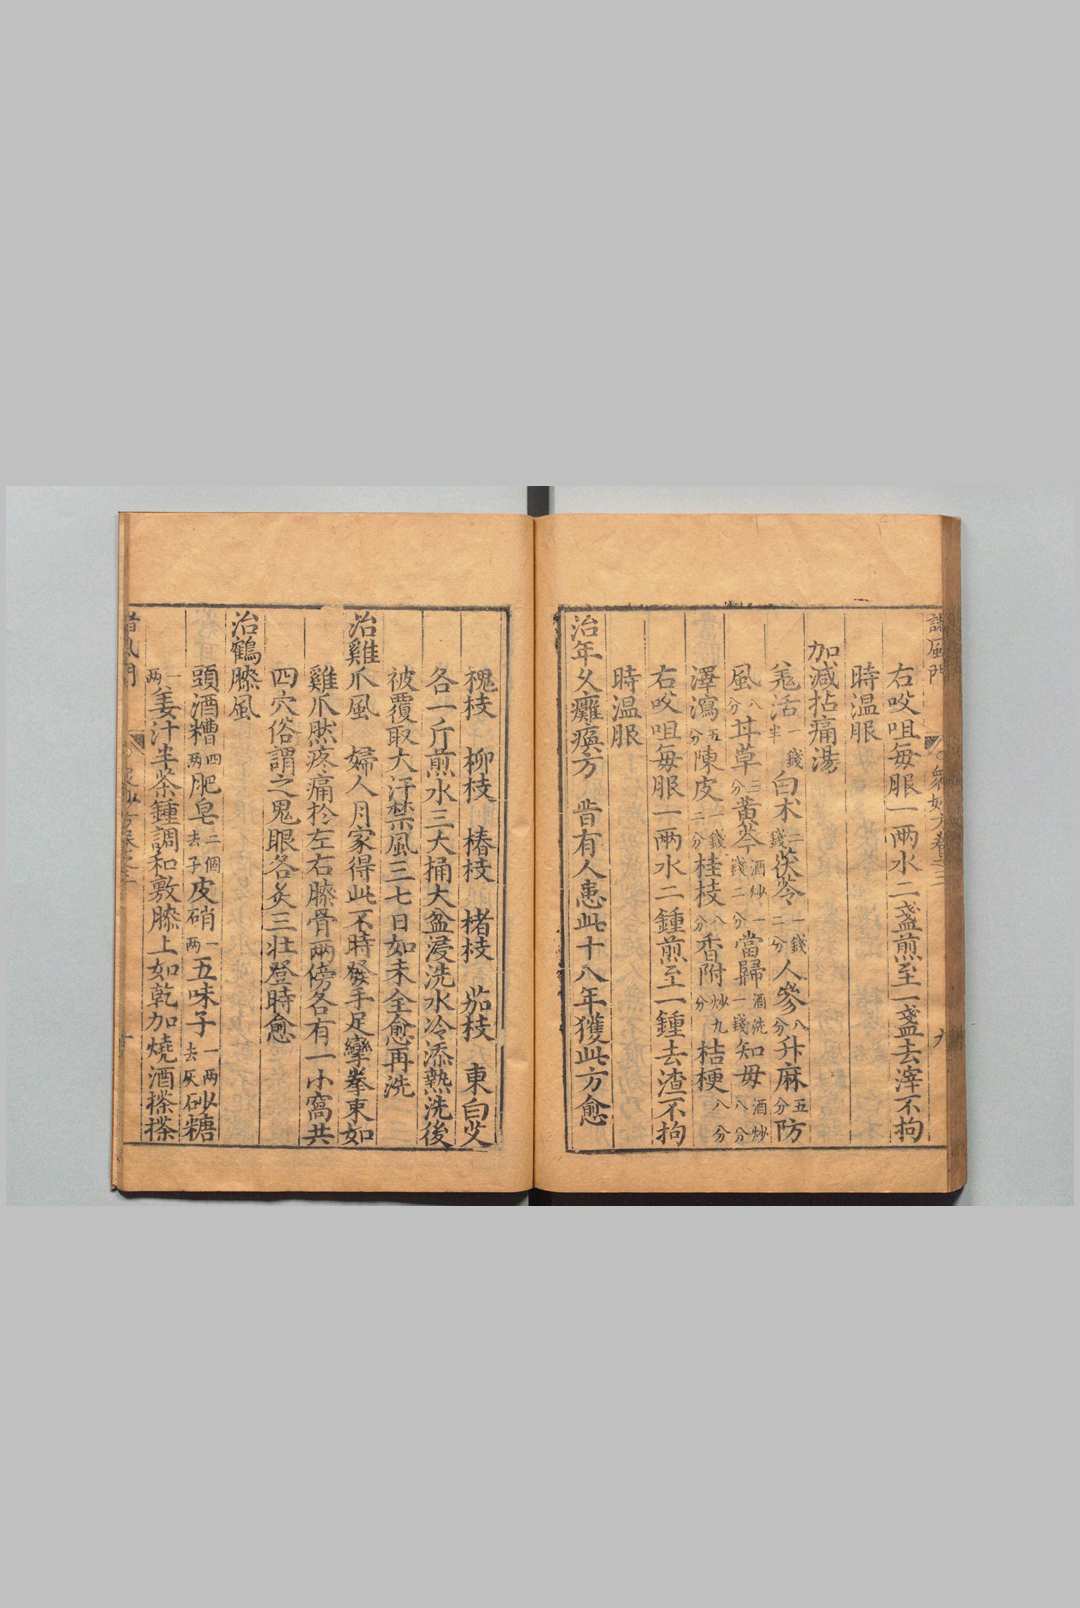 諸風門
衆妙方卷之二
九
右㕮咀每服一兩水二盞煎至一盞去滓不拘
時温服
加減拈痛湯
羌活一錢半白术二錢茯苓一錢二分人參八分升麻五分防
風八分甘草三分黃芩酒炒一錢二分當歸酒洗一錢知母酒炒八分
澤瀉五分陳皮一錢二分桂枝八分香附炒九分桔梗八分
右㕮咀每服一兩水二鍾煎至一鍾去渣不拘
時温服
治年久癱瘓方 昔有人患此十八年獲此方愈
槐枝 柳枝 椿枝 楮枝 茄枝 東白艾
各一斤煎水三大桶大盆浸洗水冷添熱洗後
被覆取大汗禁風三七日如未全愈再洗
治雞爪風 婦人月家得此不時發手足攣拳束如
雞爪然疼痛於左右膝骨兩傍各有一小窩共
四穴俗謂之鬼眼各灸三壯登時愈
治鶴膝風
頭酒糟四兩肥皂二個去子皮硝一兩五味子一兩去灰砂糖
一兩姜汁半茶鍾調和敷膝上如乾加燒酒搽搽
諸風門
十